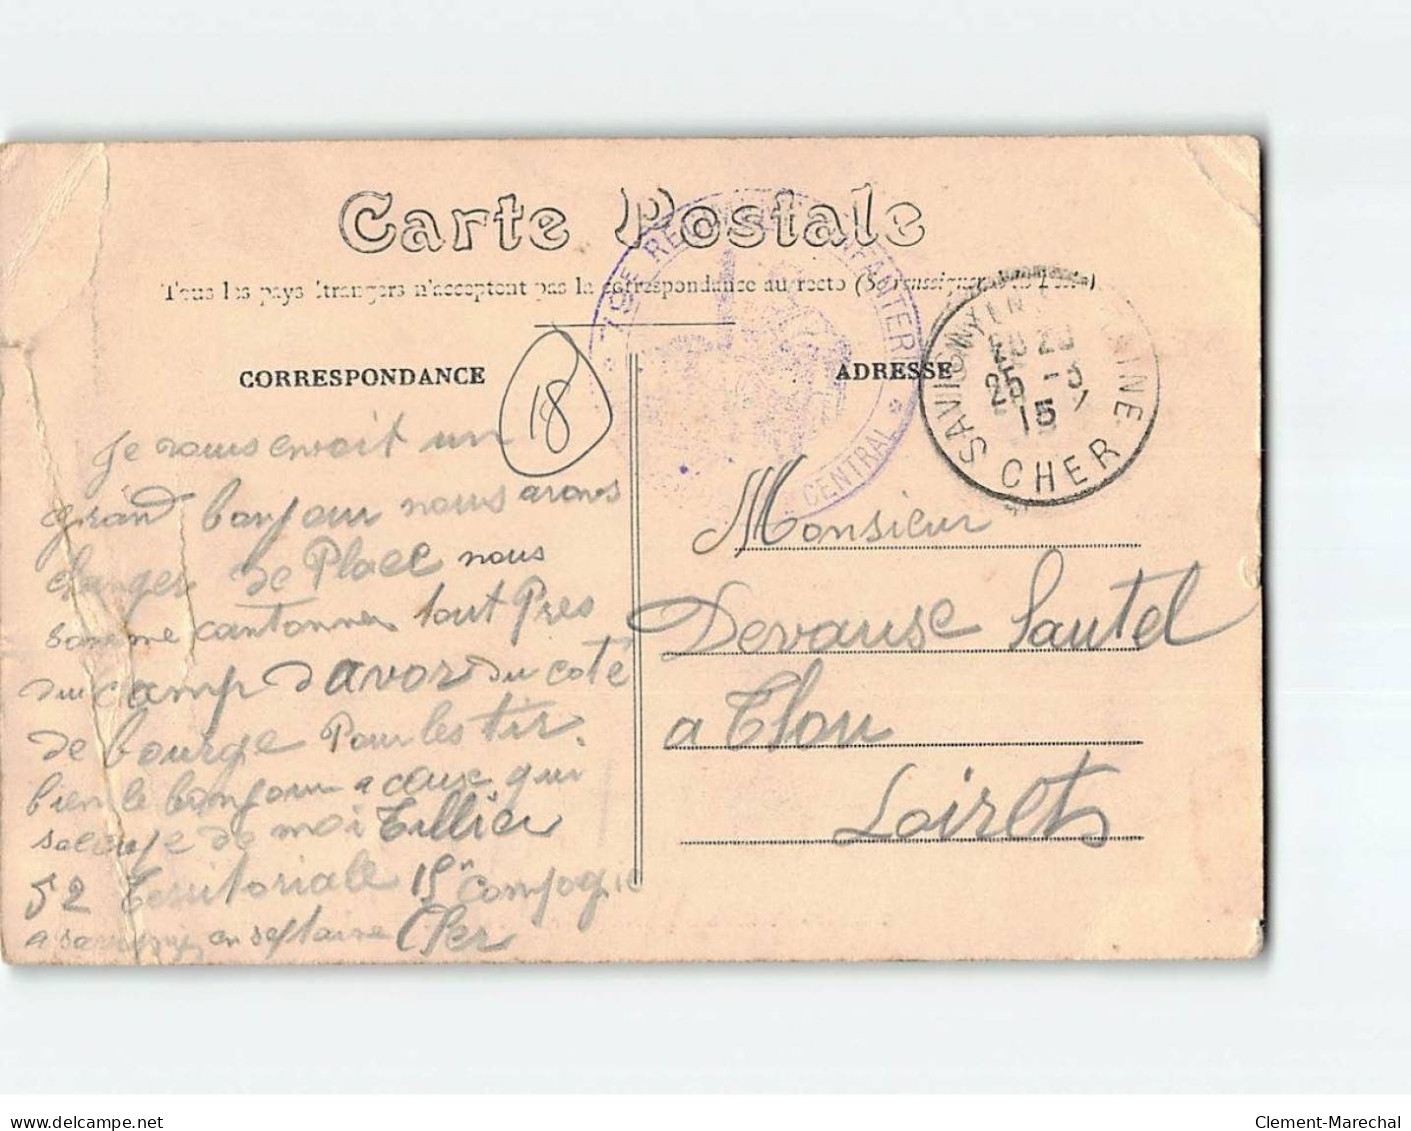 Carte Postale
Tous les pays étrangers n'acceptent pas la correspondance au recto (Se renseigner à la Poste)
CORRESPONDANCE
ADRESSE
18
REGIMENT INFANTERIE
CENTRAL
SAVIGNY EN SEPTAINE
25 -3
15
CHER
Je vous envoit un
grand bonjour nous avons
changer de Place nous
somme cantonner tout Pres
du camp d avor du coté
de bourge Pour les tir.
bien le bonjour a ceux qui
de moi Tillier
52 Territoriale 15n compagnie
a savigny en septaine Cher
Monsieur
Devause Sautel
a Thou
Loiret
www.delcampe.net
Clement-Marechal